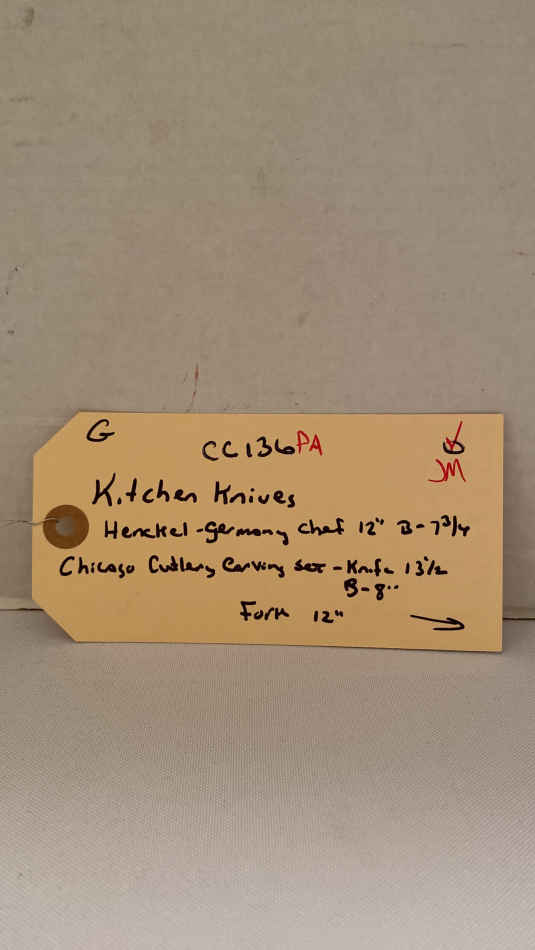 G
CC136PA
JM
Kitchen Knives
Henckel-Germany Chef 12" B-7 3/4
Chicago Cutlery Carving Set - Knife 13 1/2
B-8"
Fork 12" →